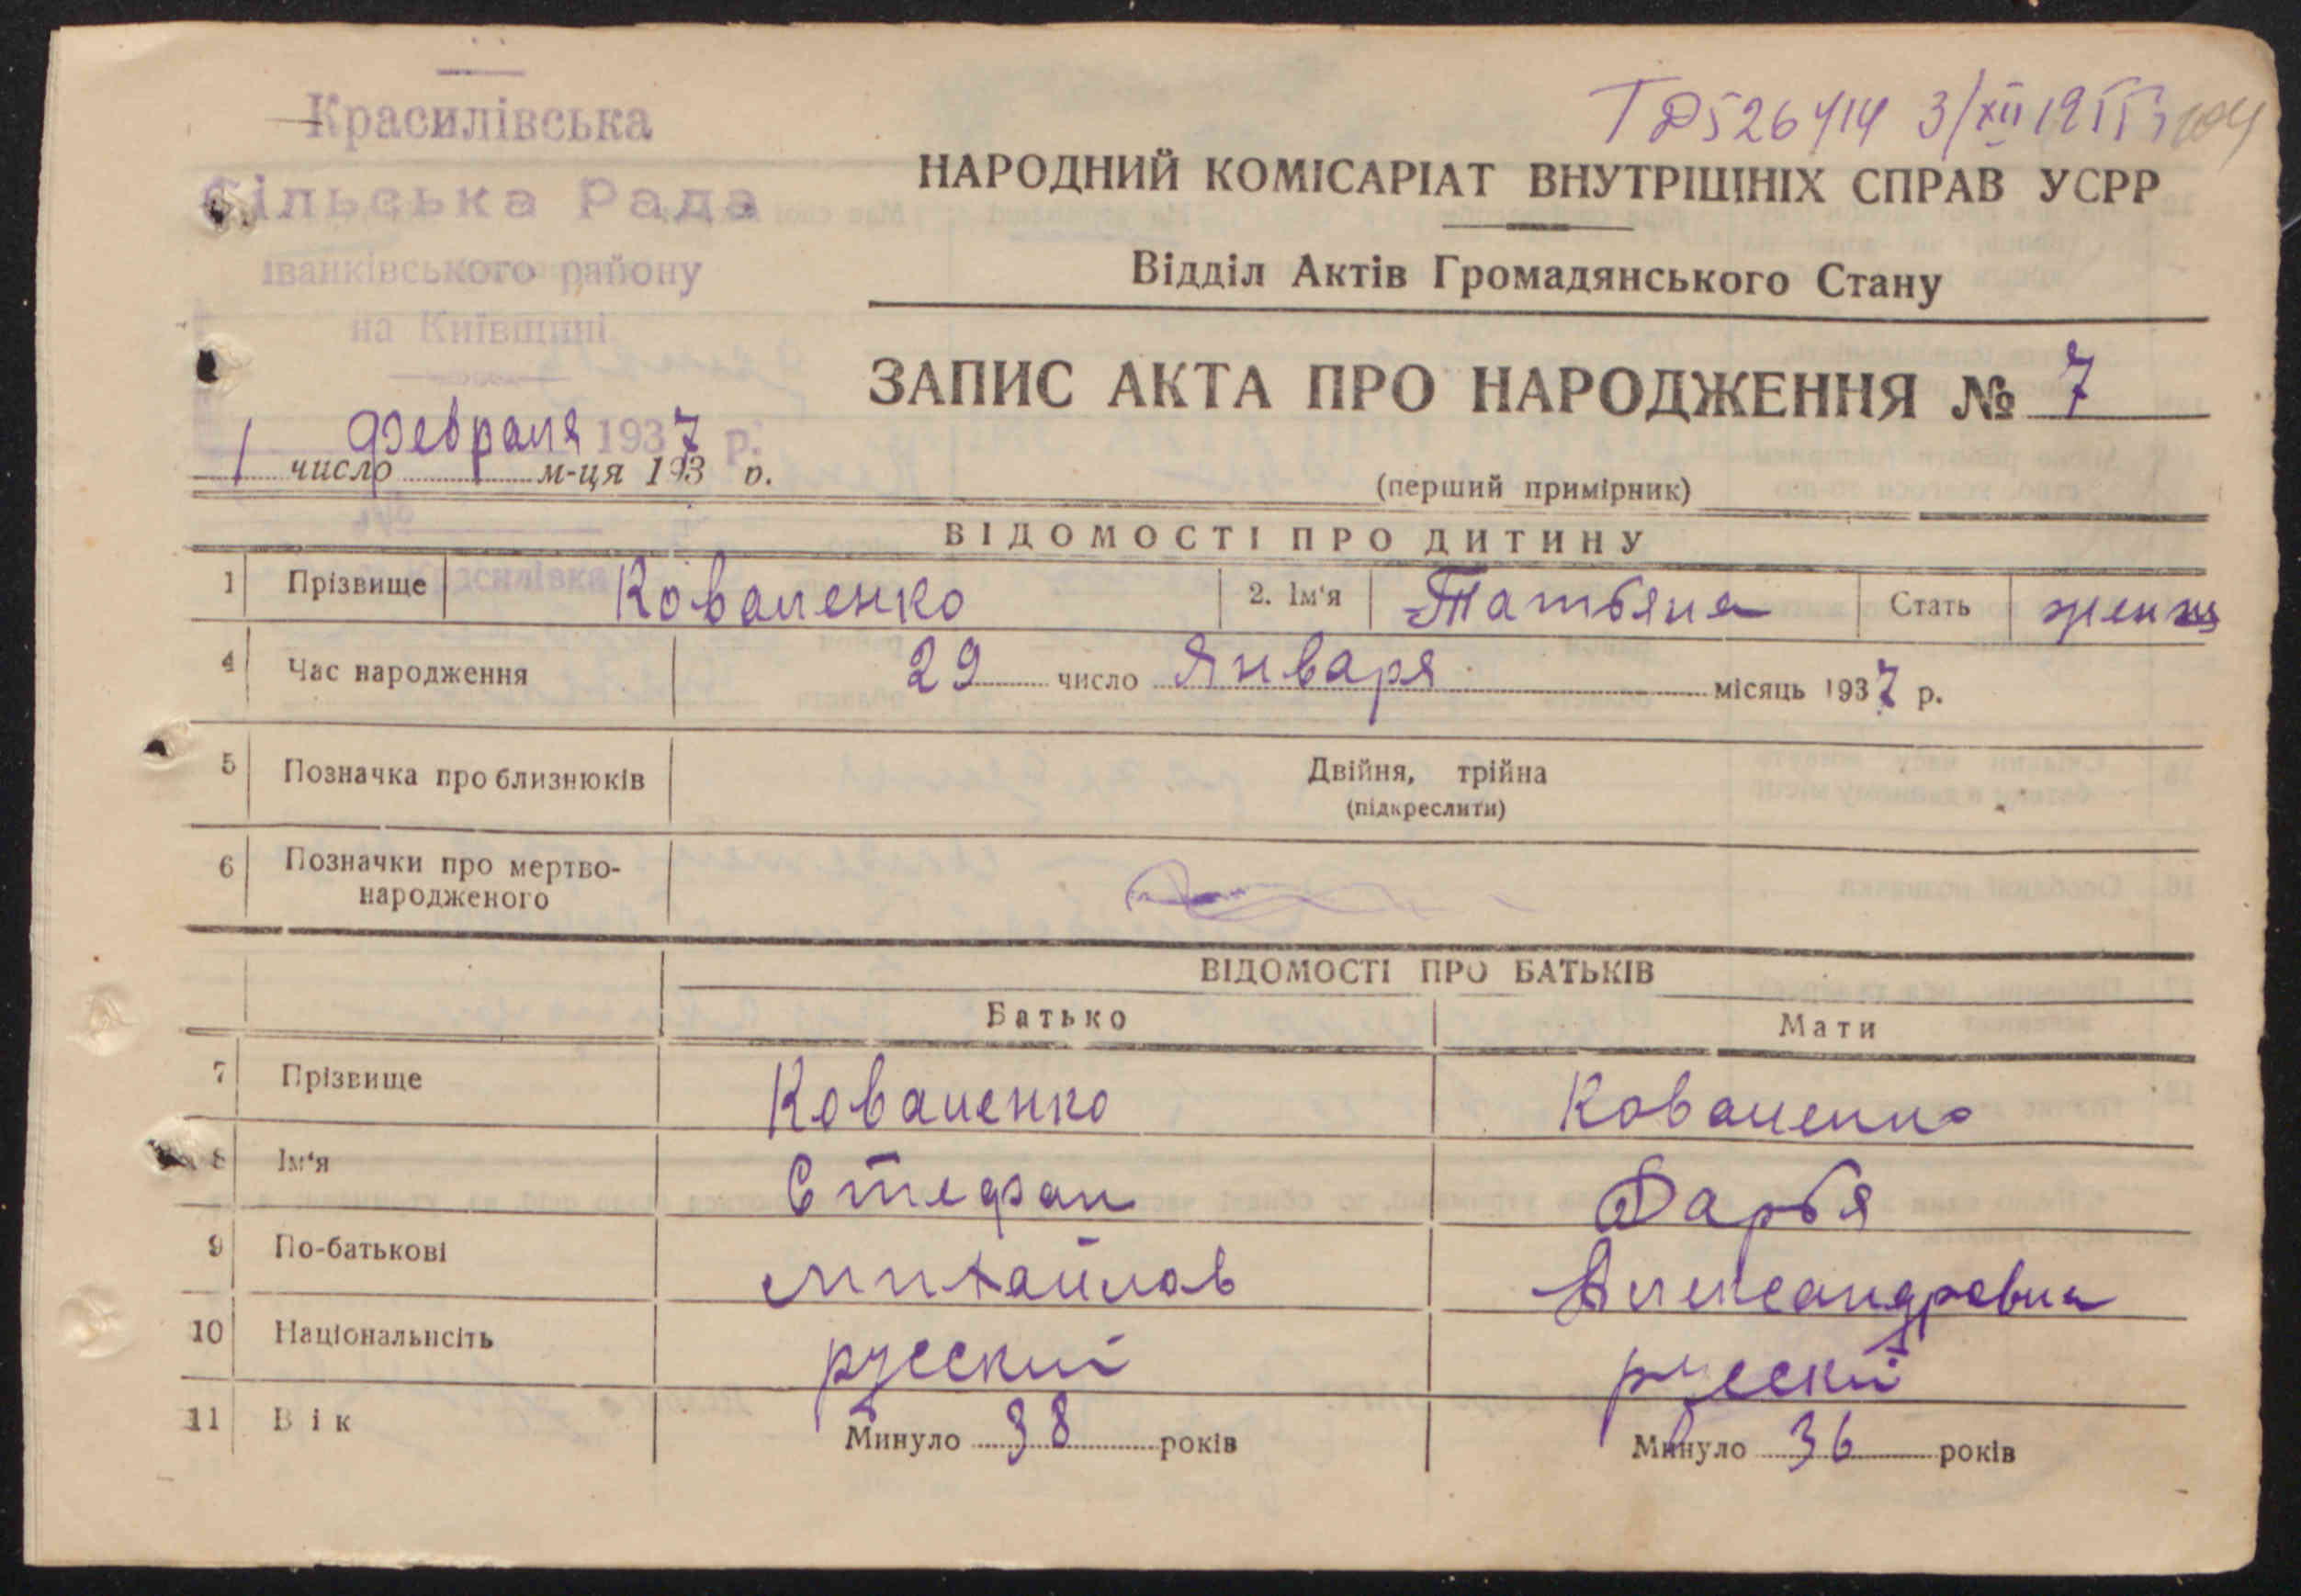 Красилівська
Сільська Рада
Іванківського району
на Київщині
ТД526414 3/XII 1955
НАРОДНИЙ КОМІСАРІАТ ВНУТРІШНІХ СПРАВ УСРР
Відділ Актів Громадянського Стану
ЗАПИС АКТА ПРО НАРОДЖЕННЯ № 7
февраля 1937 р.
1 число м-ця 193 р.
(перший примірник)
ВІДОМОСТІ ПРО ДИТИНУ
1 Прізвище Коваленко 2. Ім'я Татьяна Стать женщ
4 Час народження 29 число Января місяць 1937 р.
5 Позначка про близнюків Двійня, трійна
(підкреслити)
6 Позначки про мертво-
народженого
ВІДОМОСТІ ПРО БАТЬКІВ
Батько Мати
7 Прізвище Коваленко Коваленко
8 Ім'я Стефан Дарья
9 По-батькові Михайлов Александровна
10 Національнсіть русский русскій
11 Вік Минуло 38 років Минуло 36 років